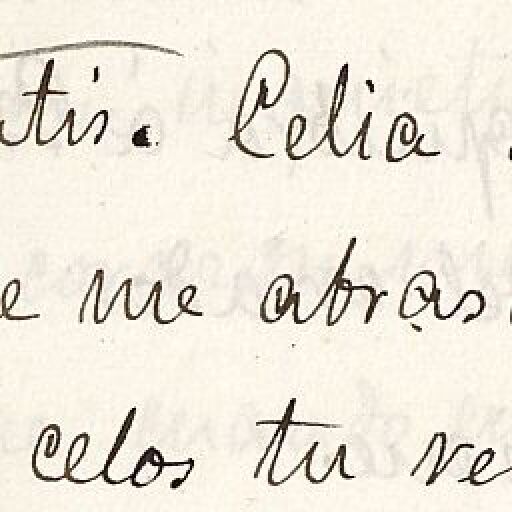 atis. Celia
e me abras
celos tu ve